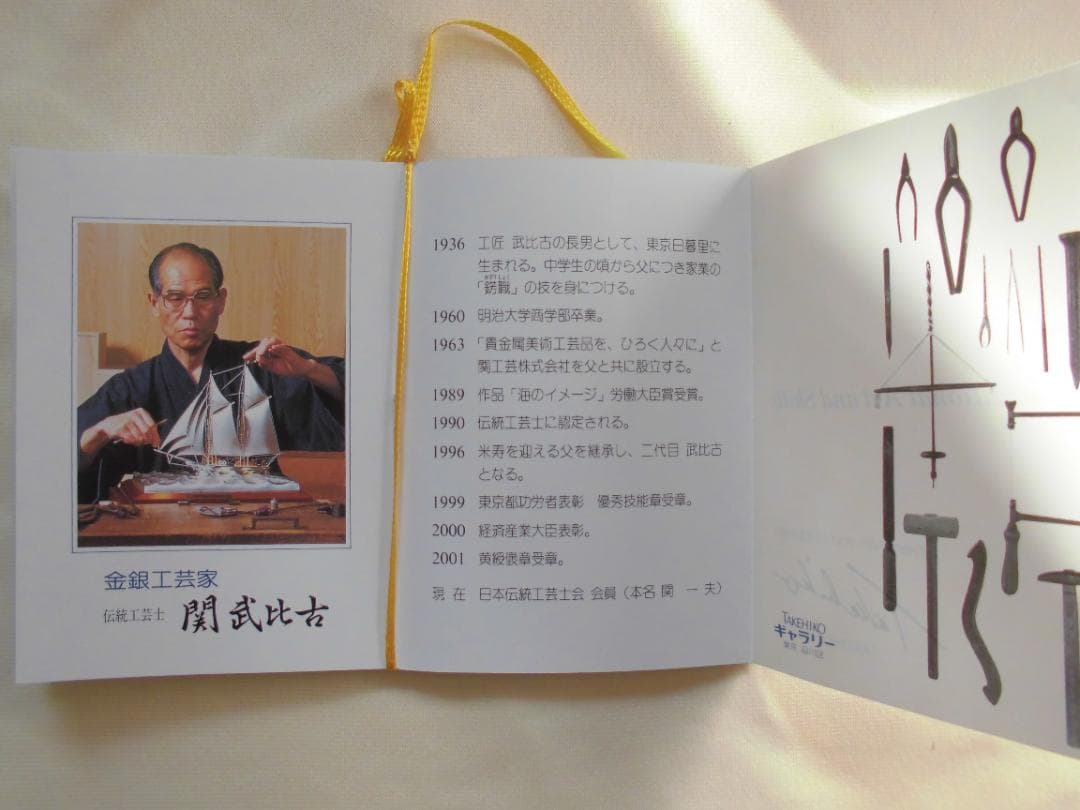 金銀工芸家
伝統工芸士 関 武比古
1936 工匠 武比古の長男として、東京日暮里に
生まれる。中学生の頃から父につき家業の
「錺職」の技を身につける。
1960 明治大学商学部卒業。
1963 「貴金属美術工芸品を、ひろく人々に」と
関工芸株式会社を父と共に設立する。
1989 作品「海のイメージ」労働大臣賞受賞。
1990 伝統工芸士に認定される。
1996 米寿を迎える父を継承し、二代目 武比古
となる。
1999 東京都功労者表彰 優秀技能章受章。
2000 経済産業大臣表彰。
2001 黄綬褒章受章。
現在 日本伝統工芸士会 会員（本名 関 一夫）
TAKEHIKO
ギャラリー
東京 品川区